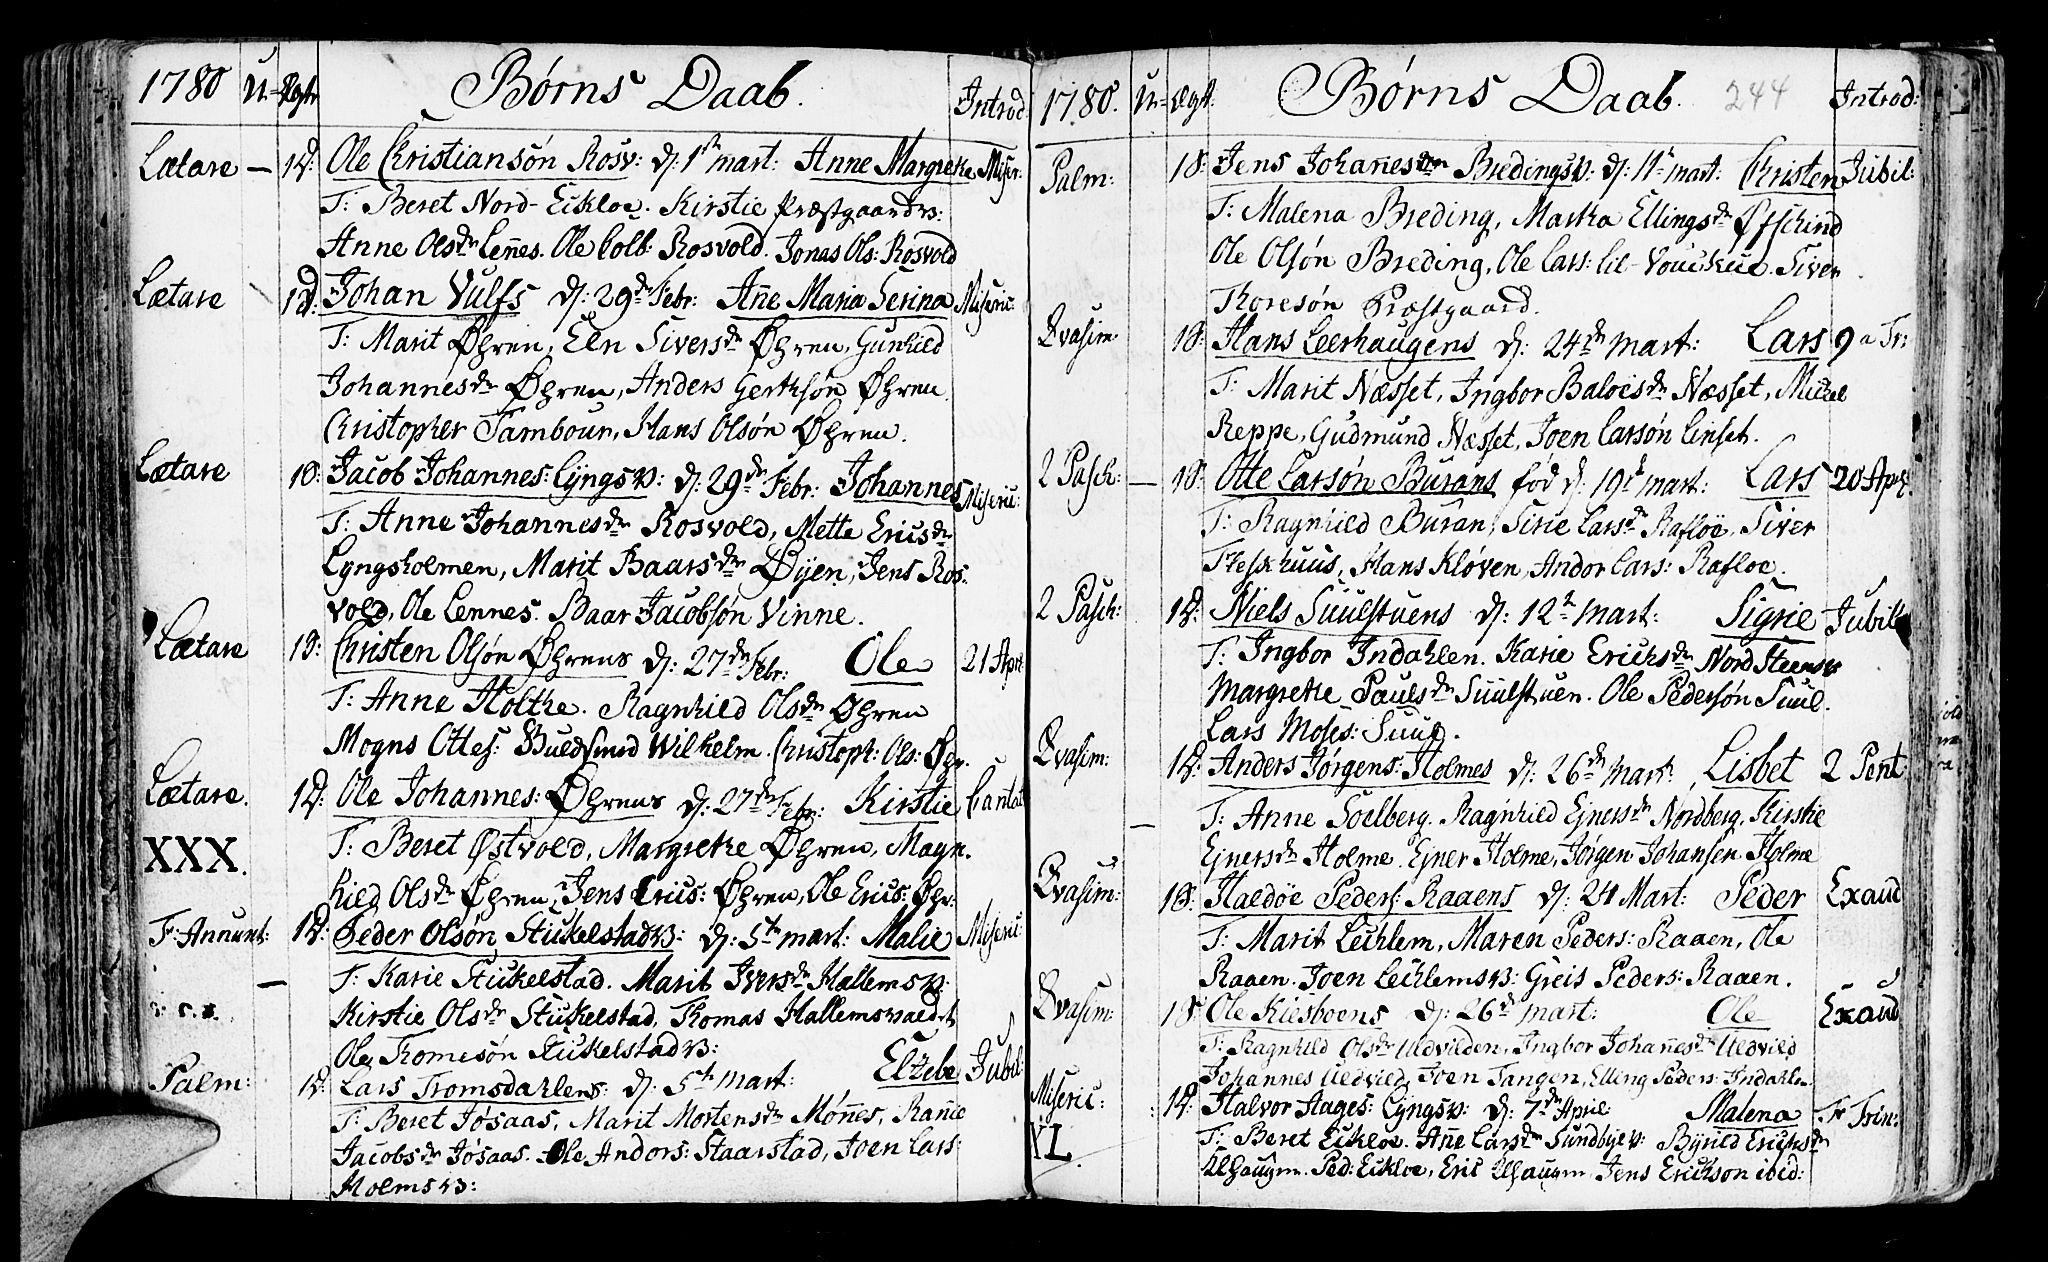 1780 U- Ægte Børns Daab. Introd:
Lætare — 1 D: Ole Christiansøn Rosv: d: 1st mart: Anne Margrete Miser:
T: Beret Nord-Eekloe. Kirstie Præstgaardv:
Anne Olsdr Lennes. Ole Colb: Rosvold. Jonas Ols: Rosvold
Lætare 1 D: Johan Vulfs d: 29de Febr: Anne Maria Serina Miseric:
T: Marit Øhren, Elen Siversdr Øhren, Gunhild
Johannesdr Øhren, Anders Gerthsøn Øhren.
Christopher Tambour, Hans Olsøn Øhren.
Lætare 1 S: Jacob Johannes: Lyngsv: d: 29de Febr: Johannes Miseric:
T: Anne Johannesdr Rosvold, Mette Ericsdr
Lyngsholmen, Marit Baarsdr Øijen, Jens Ros-
vold, Ole Lennes. Baar Jacobsøn Vinne.
Lætare 1 S: Christen Olsøn Øhrens d: 27de Febr: Ole 21 Apr:
T: Anne Holthe. Ragnhild Olsdr Øhren
Mogns Ottes: Buldsmed Wilhelm. Christoph: Ols: Øhr.
Lætare. 1 D: Ole Johannes: Øhrens d: 27de Febr: Kirstie Cantat
XXX. T: Beret Østvold, Margrethe Øhren, Magn-
hild Olsdr Øhren, Jens Erics: Øhren, Ole Erics: Øhr:
F. Annunt: 1 D: Peder Olsøn Stickelstadv: d: 5te mart: Malie Miseric:
— T: Karie Stickelstad. Marit Iversdr Hallemsv:
Kirstie Olsdr Stickelstad, Thomas Hallemsvaldet
Ole Thomesøn Stickelstadv:
Palm: 1 D: Lars Tromsdahlens: d: 5te mart: Eltzebe Jubil:
T: Beret Jøsaas, Marit Mortensdr Mønnes, Rannie
Jacobsdr Jøsaas. Ole Andors: Staarstad, Joen Lars:
Holmsv:
1780. U- Ægt: Børns Daab. 244 Introd:
Palm: 1 S: Jens Johannesøn Bredingsv: d: 11te mart: Christen Jubil:
T: Malena Breding, Martha Ellingsdr Øfschind
Ole Olsøn Breding, Ole Lars: lil-Vouckue. Siver
Thoresøn Præstgaard.
Qvasim: 1 S: Hans Leerhaugens d: 24de mart: Lars 9 a Tr:
T: Marit Næsset, Ingbor Baloisdr Næsset, Mickel
Reppe, Gudmund Næsset, Joen Larsøn Linset.
2 Pasch: — 1 S: Otte Larsøn Burans fød d: 19de mart: Lars 20 April.
T: Ragnhild Buran, Sirie Larsdr Rafloe, Siver
Thesshuus, Hans Kløven, Andor Lars: Rafloe.
2 Pasch: 1 D: Niels Suulstuens d: 12te mart: Sigrie Jubil
T: Ingbor Indahlen. Karie Ericksdr Nord Steensv
Margrethe Paulsdr Suulstuen. Ole Pedersøn Suul.
Lars Moses: Suul.
Qvasim: 1 D: Anders Jørgens: Holmes d: 26de mart: Lisbet 2 Pent
— T: Anne Soelberg. Ragnhild Ejnersdr Nordberg, Kirstie
Ejnersdr Holme. Ejner Holme, Jørgen Johansen Holme
Qvasim: 1 S: Haldoe Peders: Raaens d: 24 Mart: Peder Exaud
T: Marit Lechlem, Maren Peders: Raaen, Ole
Raaen. Joen Lechlemsv: Greis Peders: Raaen.
Qvasim: 1 S: Ole Kiesboens d: 26de mart: Ole Exaud
T: Ragnhild Olsdr Uldvilden, Ingbor Johannesdr Uldvild
Johannes Uldvild, Joen Tangen, Elling Peders: Indahlen
Miseric: 1 D: Halvor Aages: Lyngsv: d: 7de April: Malena Fr Trin:
XL. T: Beret Eekloe. Anne Larsdr Sundbyev: Byrild Ericksdr
Elhaugen. Ped: Eekloe, Eric Elhaugen, Jens Erickson ibid: